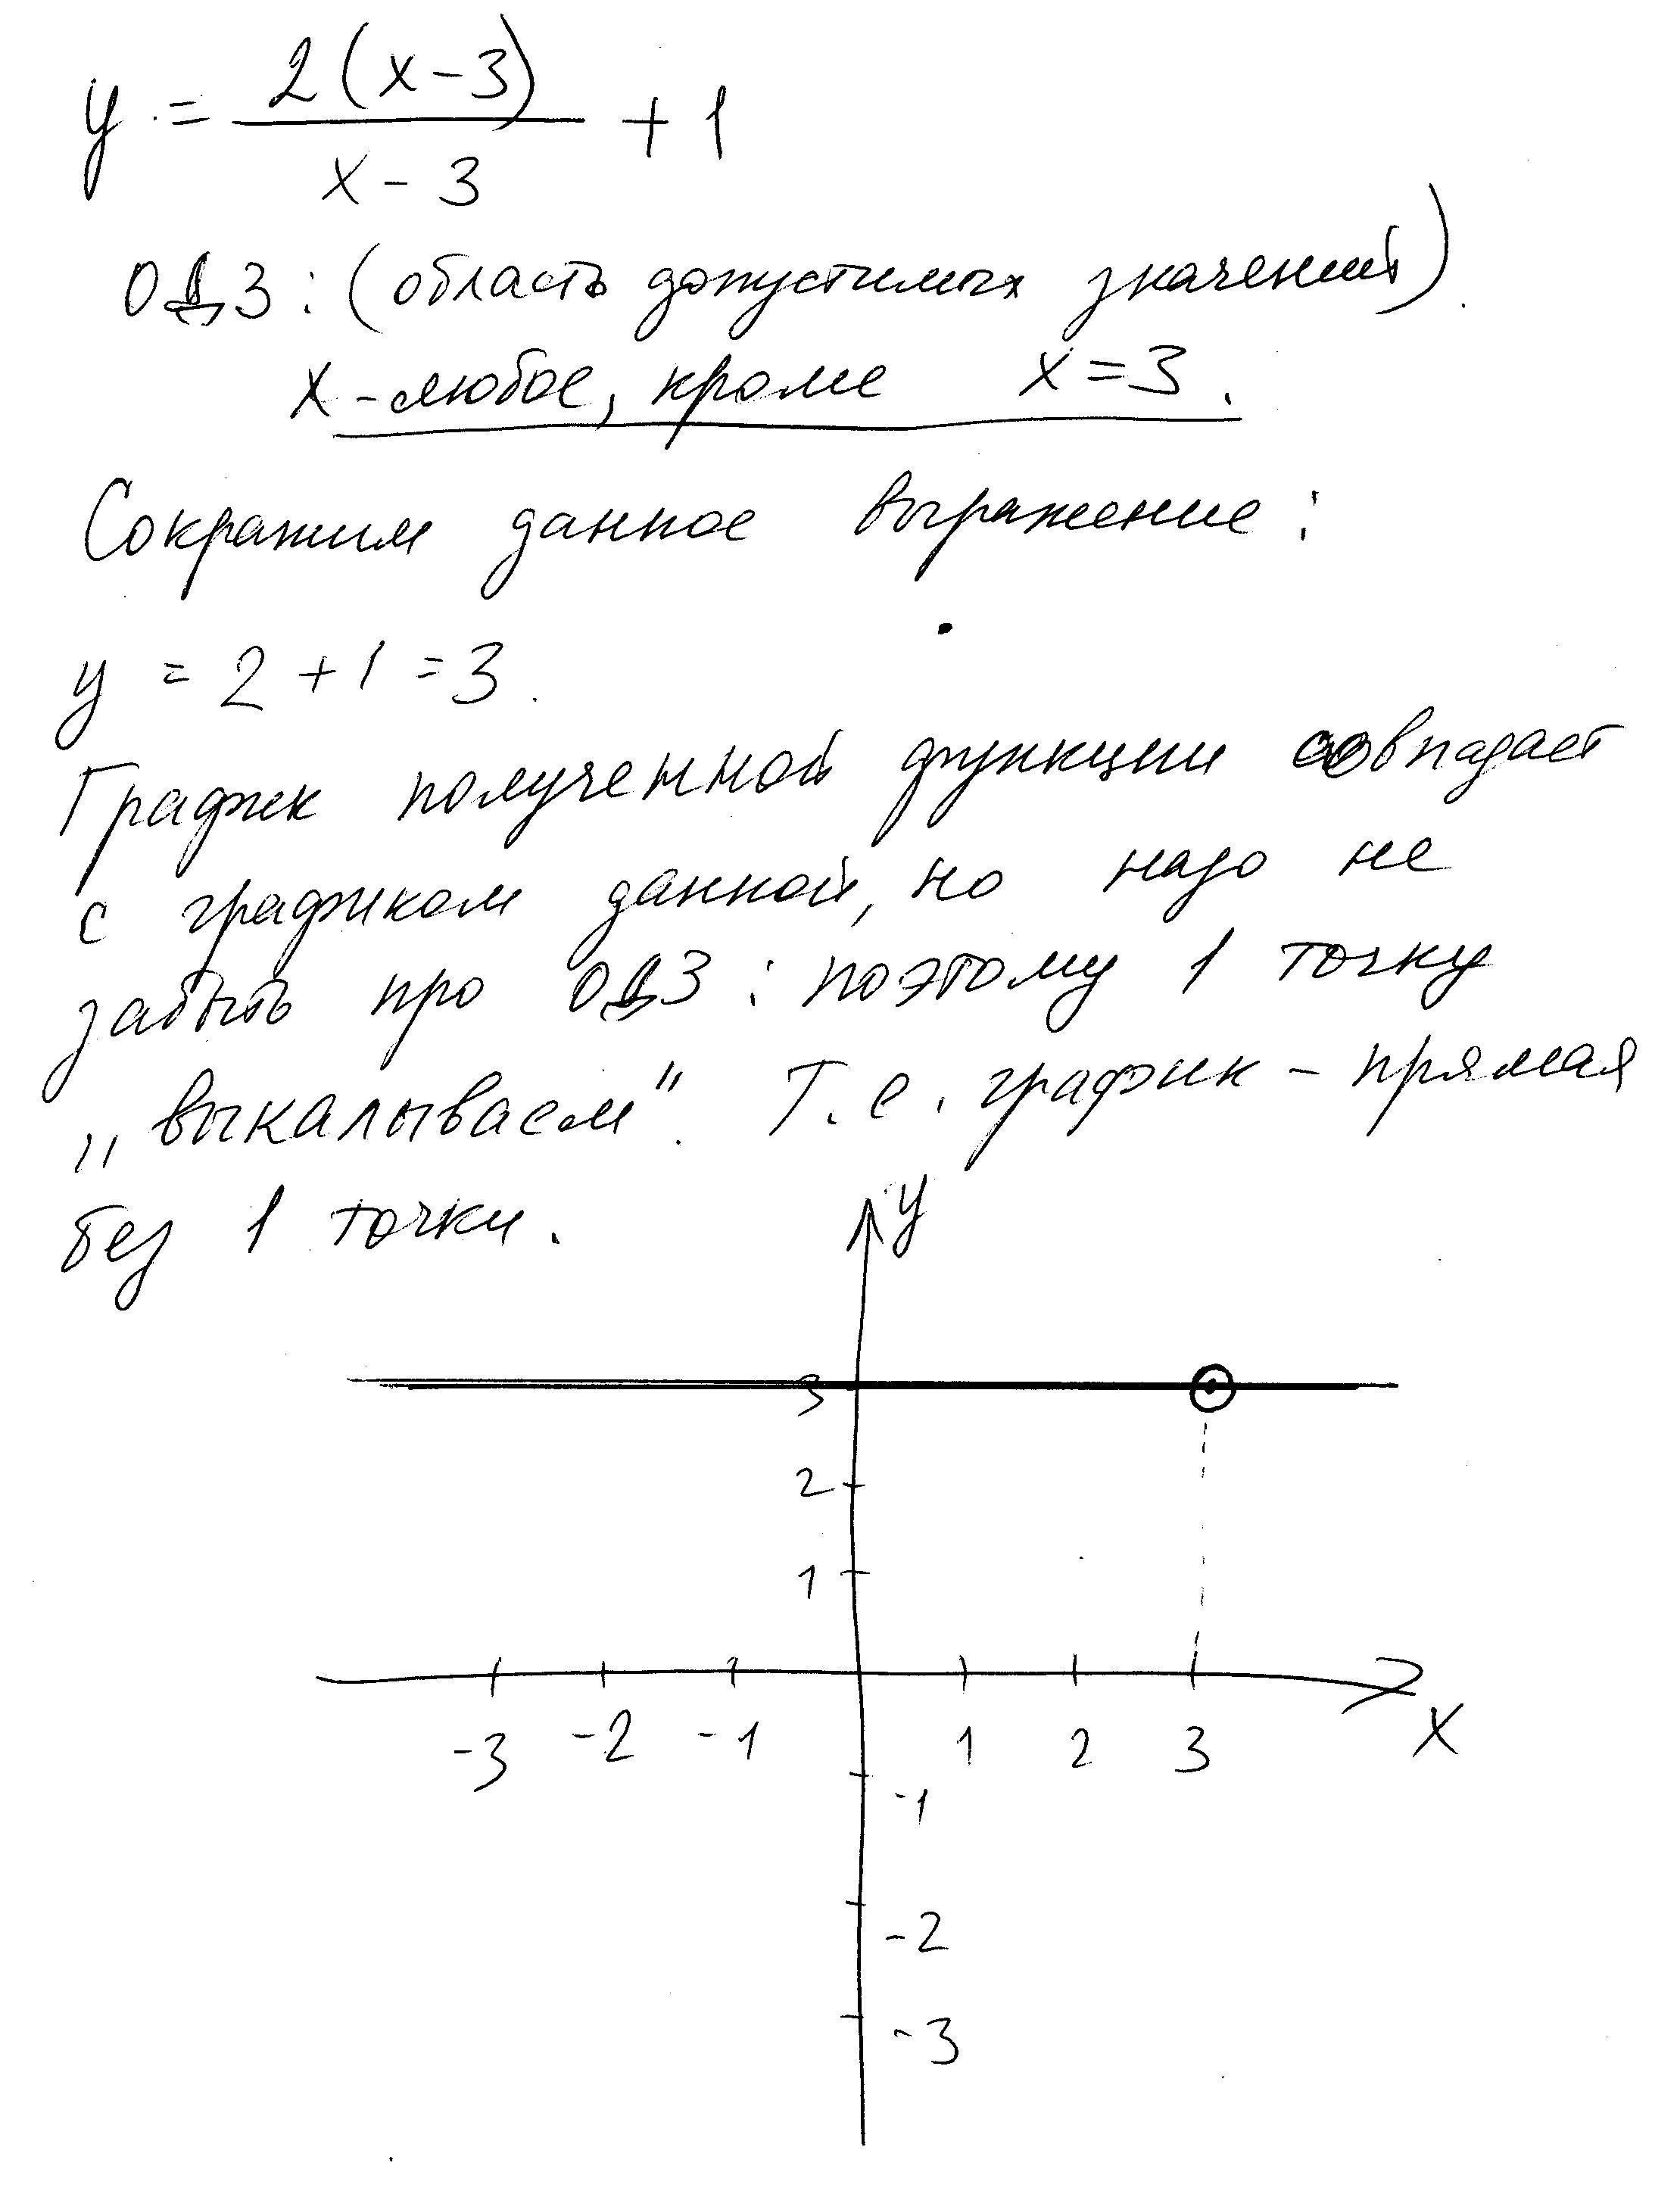 y = 2(x-3)/(x-3) + 1
ОДЗ: (область допустимых значений).
x - любое, кроме x = 3.
Сократим данное выражение:
y = 2 + 1 = 3.
График полученной функции совпадает
с графиком данной, но надо не
забыть про ОДЗ: поэтому 1 точку
„выкалываем". Т.е. график - прямая
без 1 точки.
y
3
2
1
-3 -2 -1 1 2 3 x
-1
-2
-3